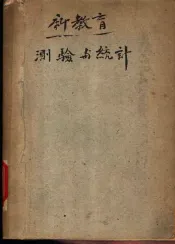 新教育
測驗与統計